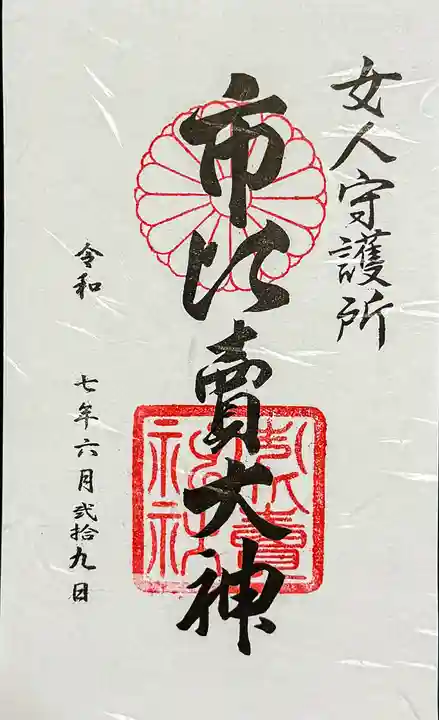 女人守護所
市比賣大神
市比賣神社
令和 七年六月弐拾九日